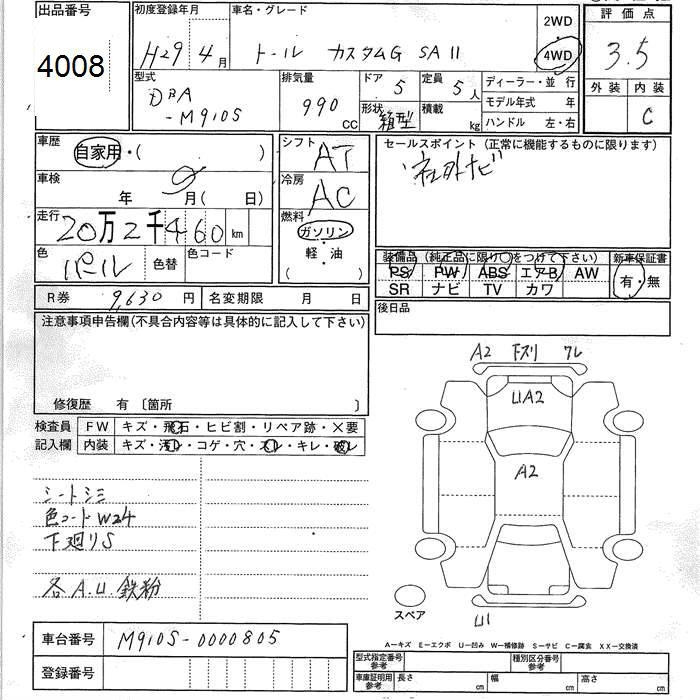 出品番号
4008
初度登録年月
H29年4月
車名・グレード
トール カスタムG SAⅡ
2WD
4WD
評価点
3.5
外装 内装
C
型式
DBA
-M910S
排気量
990
CC
ドア 5
定員 5人
形状 箱型
積載 kg
ディーラー・並行
モデル年式 年
ハンドル 左・右
車歴
自家用・( )
車検
年 9月( 日)
走行
20万2千460 km
色
パール
色替
色コード
シフト
AT
冷房
AC
燃料
ガソリン
・
軽・油
( )
セールスポイント (正常に機能するものに限ります)
社外ナビ
装備品 (純正品に限り○をつけて下さい)
新車保証書
PS PW ABS エアB AW
有・無
SR ナビ TV カワ
R券 9,630円
名変期限 月 日
後日品
注意事項申告欄(不具合内容等は具体的に記入して下さい)
修復歴 有 〔箇所 〕
検査員
記入欄
FW キズ・飛石・ヒビ割・リペア跡・×要
内装 キズ・汚レ・コゲ・穴・スレ・キレ・破レ
シートシミ
色コードW24
下廻りS
各A.U.鉄粉
A2 下スリ ワレ
U1A2
A2
スペア
U1
A-キズ E-エクボ U-凹み W-補修跡 S-サビ C-腐食 XX-交換済
車台番号 M910S-0000805
登録番号
型式指定番号
参考
種別区分番号
参考
車庫証明用
参考
長さ cm
幅 cm
高さ cm